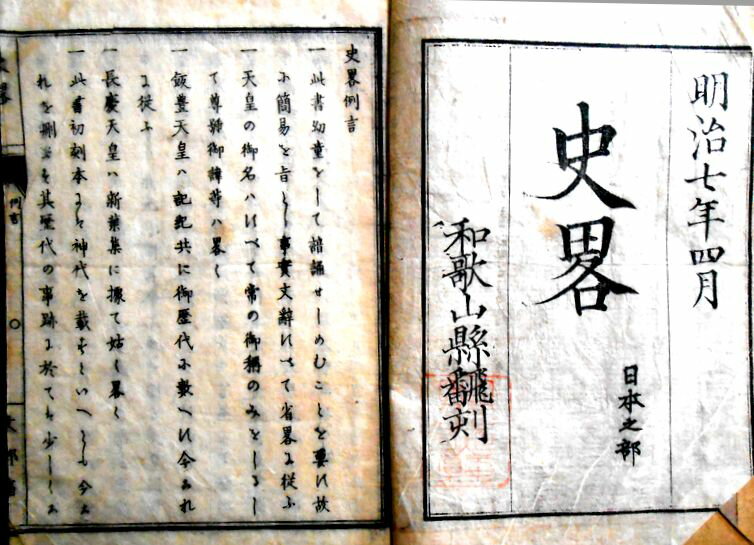 明治七年四月
史畧
日本之部
和歌山縣飜刻
史畧例言
一 此書幼童をして諳誦せしめむことを要に故
に簡易を旨とし事實文辭すべて省畧に從ふ
一 天皇の御名ハすべて常の御稱のみをしるし
て尊號御諱等ハ畧く
一 飯豊天皇ハ記紀共に御歴代に數へ今これ
に從ふ
一 長慶天皇ハ新葉集に據て姑く畧く
一 此書初刻本にハ神代を載すといへとも今こ
れを刪る其歴代の事跡に於ても少しく
例言